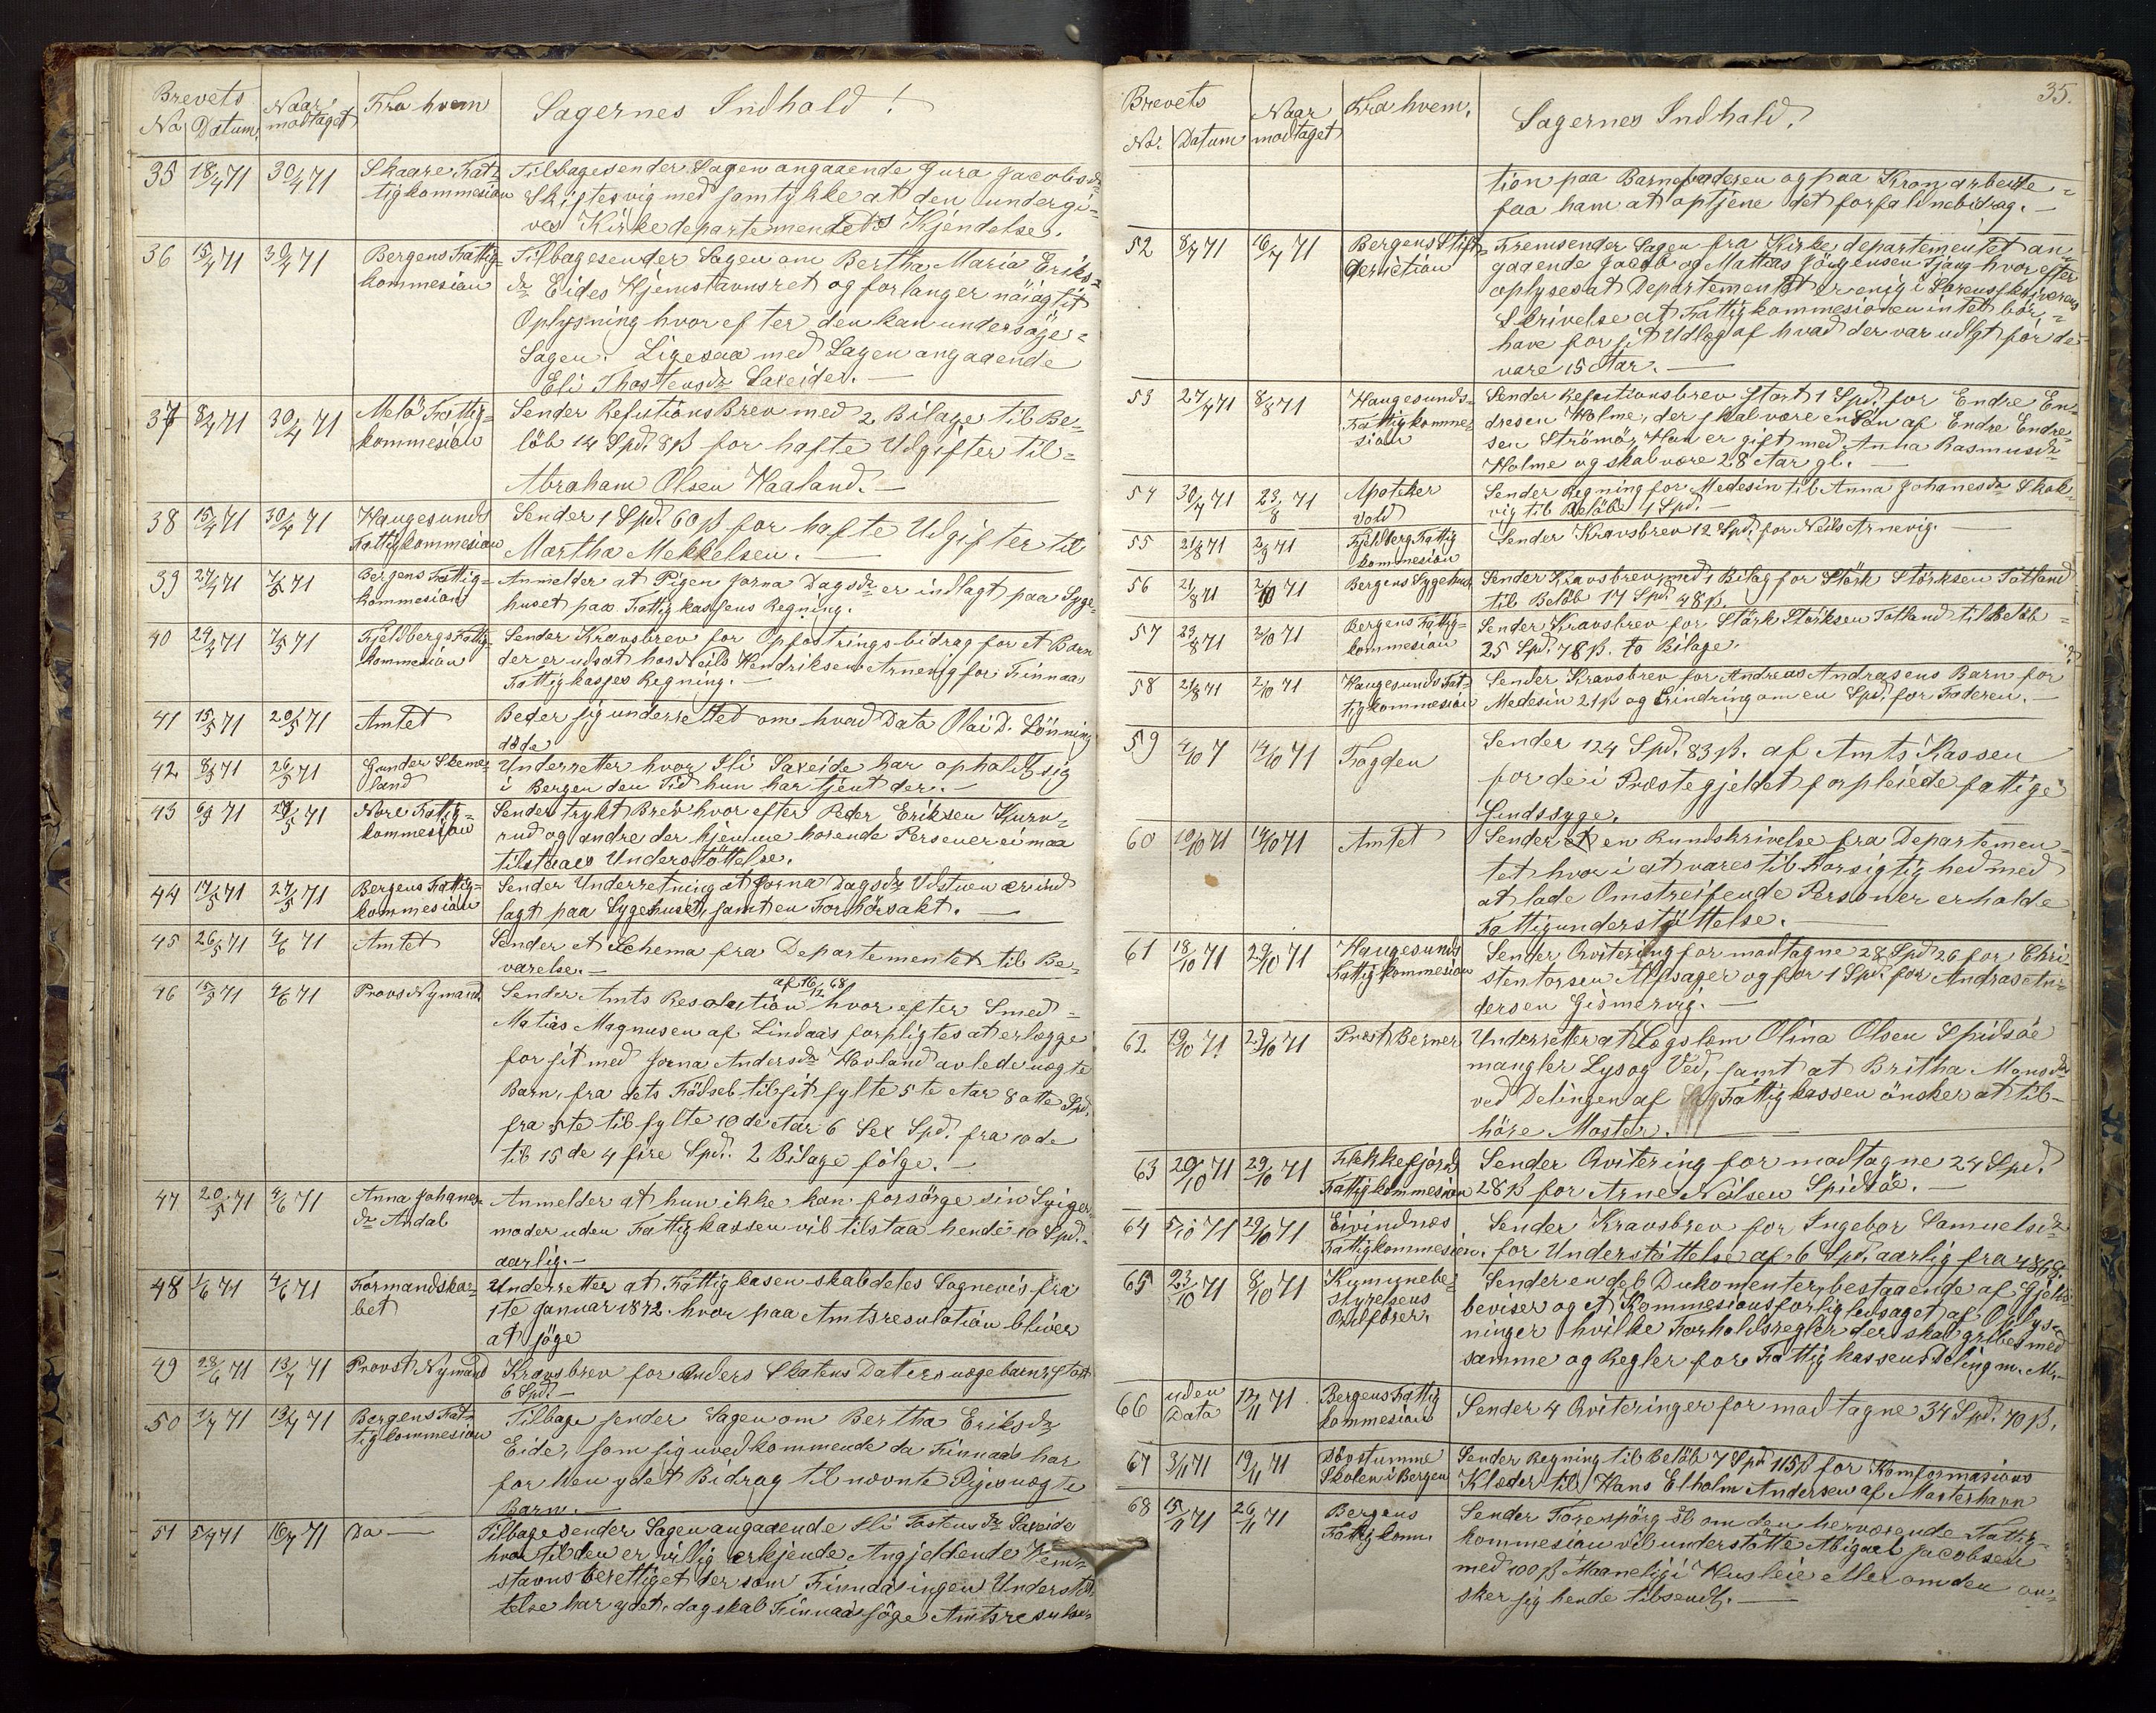 Brevets
No Datum. Naar modtaget Fra hvem Sagernes Indhold!
35 18/4 71 30/4 71 Skaare Fat- Tilbagesender Sagen angaaende Gura Jacobsdr
tigkommesion Skiftesvig med samtykke at den undergi-
ves Kirkedepartementets Kjendelse.
36 15/4 71 30/4 71 Bergens Fattig- Tilbagesender Sagen om Bertha Maria Eriks-
kommesion dr Eides Hjemstavnsret og forlanger nöiagtit
Oplysning hvorefter den kan undersöge
Sagen. Ligesaa med Sagen angaaende
Eli Thostensdr Saxeide. —
37 8/4 71 30/4 71 Melö Fattig- Sender Refutions Brev med 2 Bilage til Be-
kommesion löb 14 Spd. 8 ß for hafte Udgifter til
Abraham Olsen Haaland. —
38 15/4 71 30/4 71 Haugesunds Sender 1 Spd. 60 ß for hafte Udgifter til
Fattigkommesion Martha Mekkelsen. —
39 27/4 71 7/5 71 Bergens Fattig- Anmelder at Pigen Jorna Dagsdr er indlagt paa Syge-
kommesion huset paa Fattigkassens Regning.
40 24/4 71 7/5 71 Fjeldbergs Fattig- Sender Kravsbrev for Opfostrings-bidrag for et Barn
kommesion der er udsat hos Neils Hendriksen Arnevig for Finnaas
Fattigkasses Regning. —
41 15/5 71 20/5 71 Amtet Beder sig underrettet om hvad Data Olai D. Lönning
döde
42 8/5 71 26/5 71 Gunder Skeme- Underretter hvor Eli Saxeide har opholdt sig
land i Bergen den Tid hun har tjent der. —
43 6/5 71 28/5 71 Nore Fattig- Sender trykt Brev hvorefter Peder Eriksen Kurv-
kommesion rud og andre der hjemme hörende Personer ei maa
tilstaaes Understöttelse.
44 17/5 71 27/5 71 Bergens Fattig- Sender Underretning at Jorna Dagsdr Udstuen er ind
kommesion lagt paa Sygehuset, samt en Forhörsakt. —
45 26/5 71 4/6 71 Amtet Sender et Schema fra Departementet til Be-
varelse. —
af 16/12 68
46 15/5 71 4/6 71 Provs Nymand Sender Amts Resolution hvorefter Smed
Matias Magnusen af Lindaas forpligtes at erlægge
for sit med Jorna Andersdr Hovland avlede uægte
Barn, fra dets Födsel til sit fylte 5te Aar 8 otte Spd.
fra 5te til fylte 10de Aar 6 Sex Spd. fra 10de
til 15de 4 fire Spd. 2 Bilage fölge. —
47 20/5 71 4/6 71 Anna Johanes- Anmelder at hun ikke kan forsörge sin Sviger-
dr Andal moder uden Fattigkassen vil tilstaa hende 10 Spd.
aarlig. —
48 1/6 71 4/6 71 Formandska- Underretter at Fattigkasen skal deles Sognevis fra
bet 1te Januar 1872. hvor paa Amtsresolution bliver
at söge
49 28/6 71 13/7 71 Provst Nymand Kravsbrev for Anders Skatens Daters uægebarn, Stort
6 Spd. —
50 1/7 71 13/7 71 Bergens Fat- Tilbage sender Sagen om Bertha Eriksdr
tigkommesion Eide, som sig uvedkommende da Finnaas har
for hen ydet Bidrag til nævnte Piges uægte
Barn. —
51 5/7 71 16/7 71 Do — Tilbagesender Sagen angaaende Eli Tostensdr Saxeide
hvor til den er villig erkjende Angjeldende Hem-
stavnsberettiget der som Finnaas ingen Understöt
telse har ydet, dog skal Finnaas söge Amtsresolu-
35.
Brevets
No. Datum Naar modtaget Fra hvem. Sagernes Indhald.
tion paa Barnefaderen og paa Kronarbeide
faa ham at optjene det forfaldnebidrag. —
52 8/7 71 16/7 71 Bergens Stift- Fremsender Sagen fra Kirkedepartementet an-
deriction gaaende Jacob og Mattias Jörgensen Tjang hvorefter
oplyses at Departementet er enig i Sorenskriverens
Skrivelse at Fattigkommesionen intet bör
have for sit Udlæg af hvad der var udlgt för de
vare 15 Aar. —
53 27/7 71 8/8 71 Haugesunds- Sender Refutionsbrev Stort 1 Spd. for Endre En-
Fattigkomme- dresen Holme, der skal være en Sön af Endre Endre-
sion sen Strömö, Han er gift med Anna Rasmusdr
Holme og skal være 28 Aar gl. —
54 30/7 71 23/8 71 Apoteker Sender Regning for Medesin til Anna Johanesdr Skok-
Vold vig til Belöb 4 Spd. —
55 21/8 71 2/9 71 Fjeldberg Fattig Sender Kravsbrev 12 Spd. for Neils Arnevig. —
kommesion
56 21/8 71 2/10 71 Bergens Sygehus Sender Kravsbrev med 1 Bilag for Störk Störksen Totland
til Belöb 17 Spd. 48 ß.
57 23/8 71 2/10 71 Bergens Fattig- Sender Kravsbrev for Störk Störksen Totland til Belöb
kommesion 25 Spd. 78 ß. to Bilage.
58 21/8 71 2/10 71 Haugesunds Fat- Sender Kravsbrev for Andreas Andrasens Barn for
tigkommesion Medesin 21 ß og Erindring om en Spd. for Faderen. —
59 4/10 7 14/10 71 Fogden Sender 124 Spd. 83 ß. af Amts Kassen
for de i Præstegjeldet forpleiede fattige
Sindssyge.
60 10/10 71 14/10 71 Amtet Sender en Rundskrivelse fra Departemen-
tet hvor i at vares til Forsigtighed med
at lade Omstreifende Personer erholde
Fattigunderstöttelse. —
61 18/10 71 29/10 71 Haugesunds Sender Qvitering for modtagne 28 Spd 26 for Chri
Fattigkommesion stentorsen Alfsager og for 1 Spd. for Andras An-
dersen Gismervig. —
62 19/10 71 29/10 71 Præst Berner Underretter at Lægslem Olina Olsen Spidsöe
mangler Lys og Ved, samt at Britha Monsdr
ved Delingen af Fattigkassen önsker at til-
höre Moster. —
63 20/10 71 29/10 71 Flekkefjords Sender Qvitering for modtagne 24 Spd.
Fattigkommesion 28 ß for Arne Neilsen Spidsöe. —
64 5/10 71 29/10 71 Eivindnæs Sender Kravsbrev for Ingebor Samuelsdr
Fattigkommesion. for Understöttelse af 6 Spd. aarlig fra 1868.
65 23/10 71 8/10 71 Kumunebe- Sender en del Dukomenter, bestaaende af Gjelds-
styrelsens beviser og et Kommesionsforlig ledsaget af Oplys-
Ordförer. ninger hvilke Forholdsregler der skal gribes med
samme og Regler for Fattigkassens Deling m. M. —
66 uden Data 12/11 71 Bergens Fattig Sender 4 Qviteringer for modtagne 34 Spd. 70 ß.
kommesion
67 3/11 71 19/11 71 Dövstumme Sender Regning til Belöb 7 Spd 115 ß for Komformasions
Skolen i Bergen Klæder til Hans Elholm Andersen af Mosterhavn
68 15/11 71 26/11 71 Bergens Sender Forespörgsel om den herværende Fattig-
Fattigkom. kommesion vil understötte Abigael Jacobsen
med 100 ß Maanelig i Husleie eller om den ön-
sker sig hende tilsendt. —